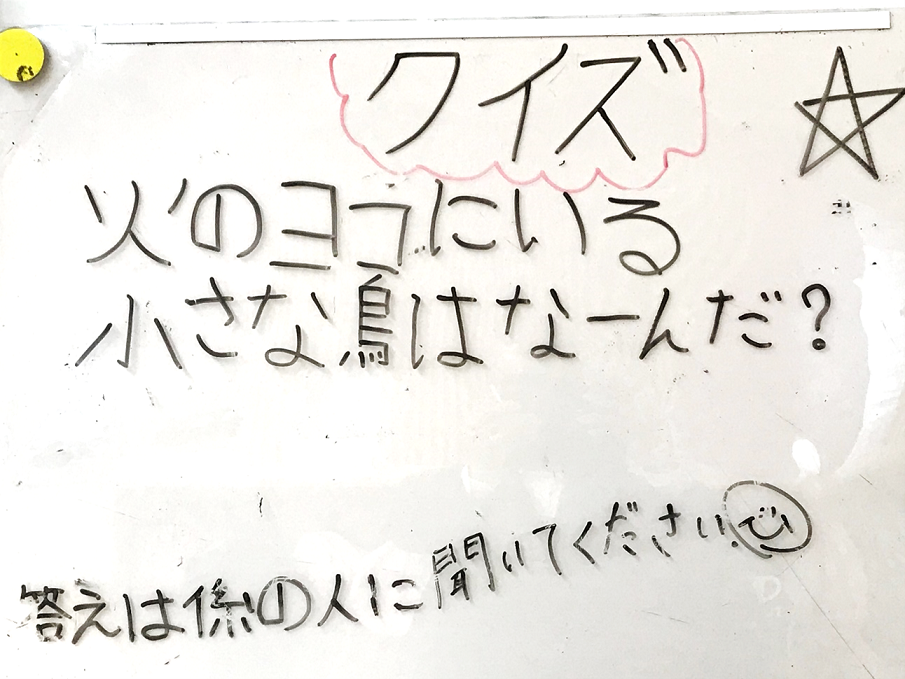 クイズ
火のヨコにいる
小さな鳥はなーんだ?
答えは係の人に聞いてください